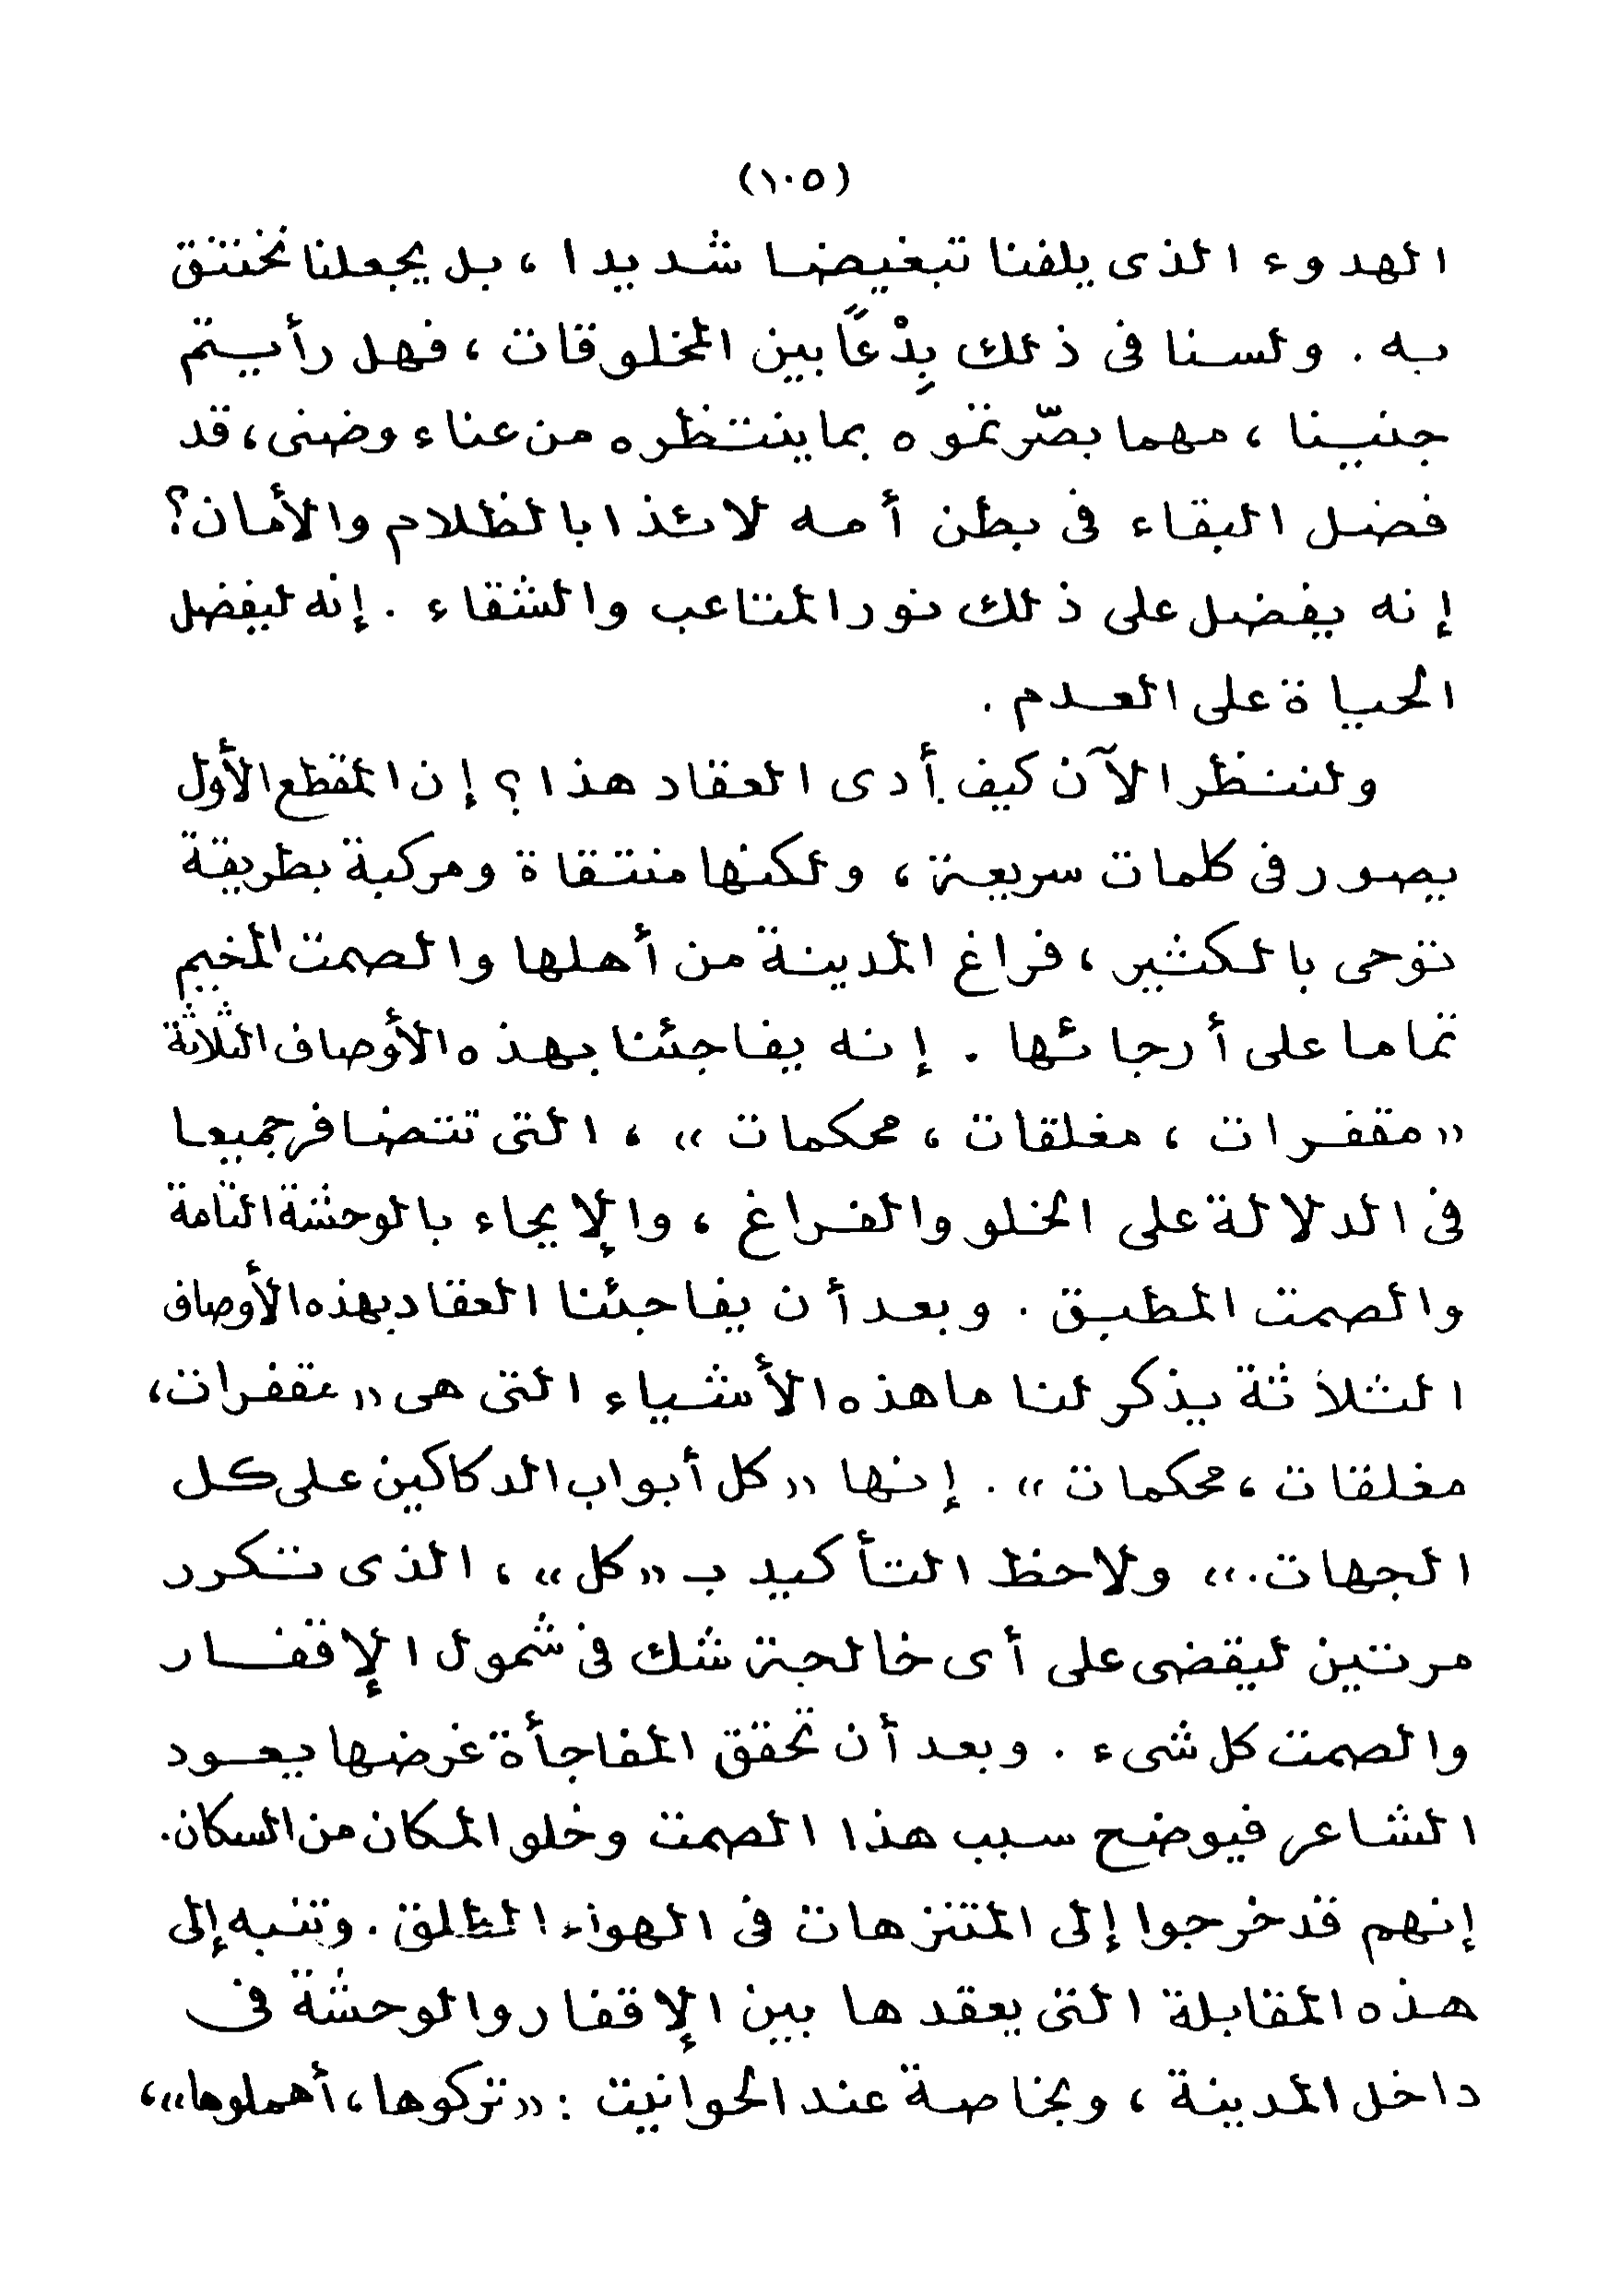 (١٠٥)
الهدوء الذى يلفنا تبغيضا شديدا ، بل يجعلنا نختنق
به . ولسنا فى ذلك بِدْعًا بين المخلوقات ، فهل رأيتم
جنينا ، مهما بصّرتموه بما ينتظره من عناء وضنى ، قد
فضل البقاء فى بطن أمه لائذا بالظلام والأمان ؟
إنه يفضل على ذلك نور المتاعب والشقاء . إنه ليفضل
الحياة على العدم .
ولننظر الآن كيف أدى العقاد هذا ؟ إن المقطع الأول
يصور فى كلمات سريعة ، ولكنها منتقاة ومركبة بطريقة
توحى بالكثير ، فراغ المدينة من أهلها والصمت المخيم
تماما على أرجائها . إنه يفاجئنا بهذه الأوصاف الثلاثة
« مقفرات ، مغلقات ، محكمات » ، التى تتضافر جميعا
فى الدلالة على الخلو والفراغ ، والإيحاء بالوحشة التامة
والصمت المطبق . وبعد أن يفاجئنا العقاد بهذه الأوصاف
الثلاثة يذكر لنا ما هذه الأشياء التى هى « مقفرات ،
مغلقات ، محكمات » . إنها « كل أبواب الدكاكين على كل
الجهات .» ولاحظ التأكيد ب « كل » ، الذى تكرر
مرتين ليقضى على أى خالجة شك فى شمول الإقفار
والصمت كل شىء . وبعد أن تحقق المفاجأة غرضها يعود
الشاعر فيوضح سبب هذا الصمت وخلو المكان من السكان .
إنهم قد خرجوا إلى المتنزهات فى الهواء الطلق . وتنبه إلى
هذه المقابلة التى يعقدها بين الإقفار والوحشة فى
داخل المدينة ، وبخاصة عند الحوانيت : « تركوها ، أهملوها » ،